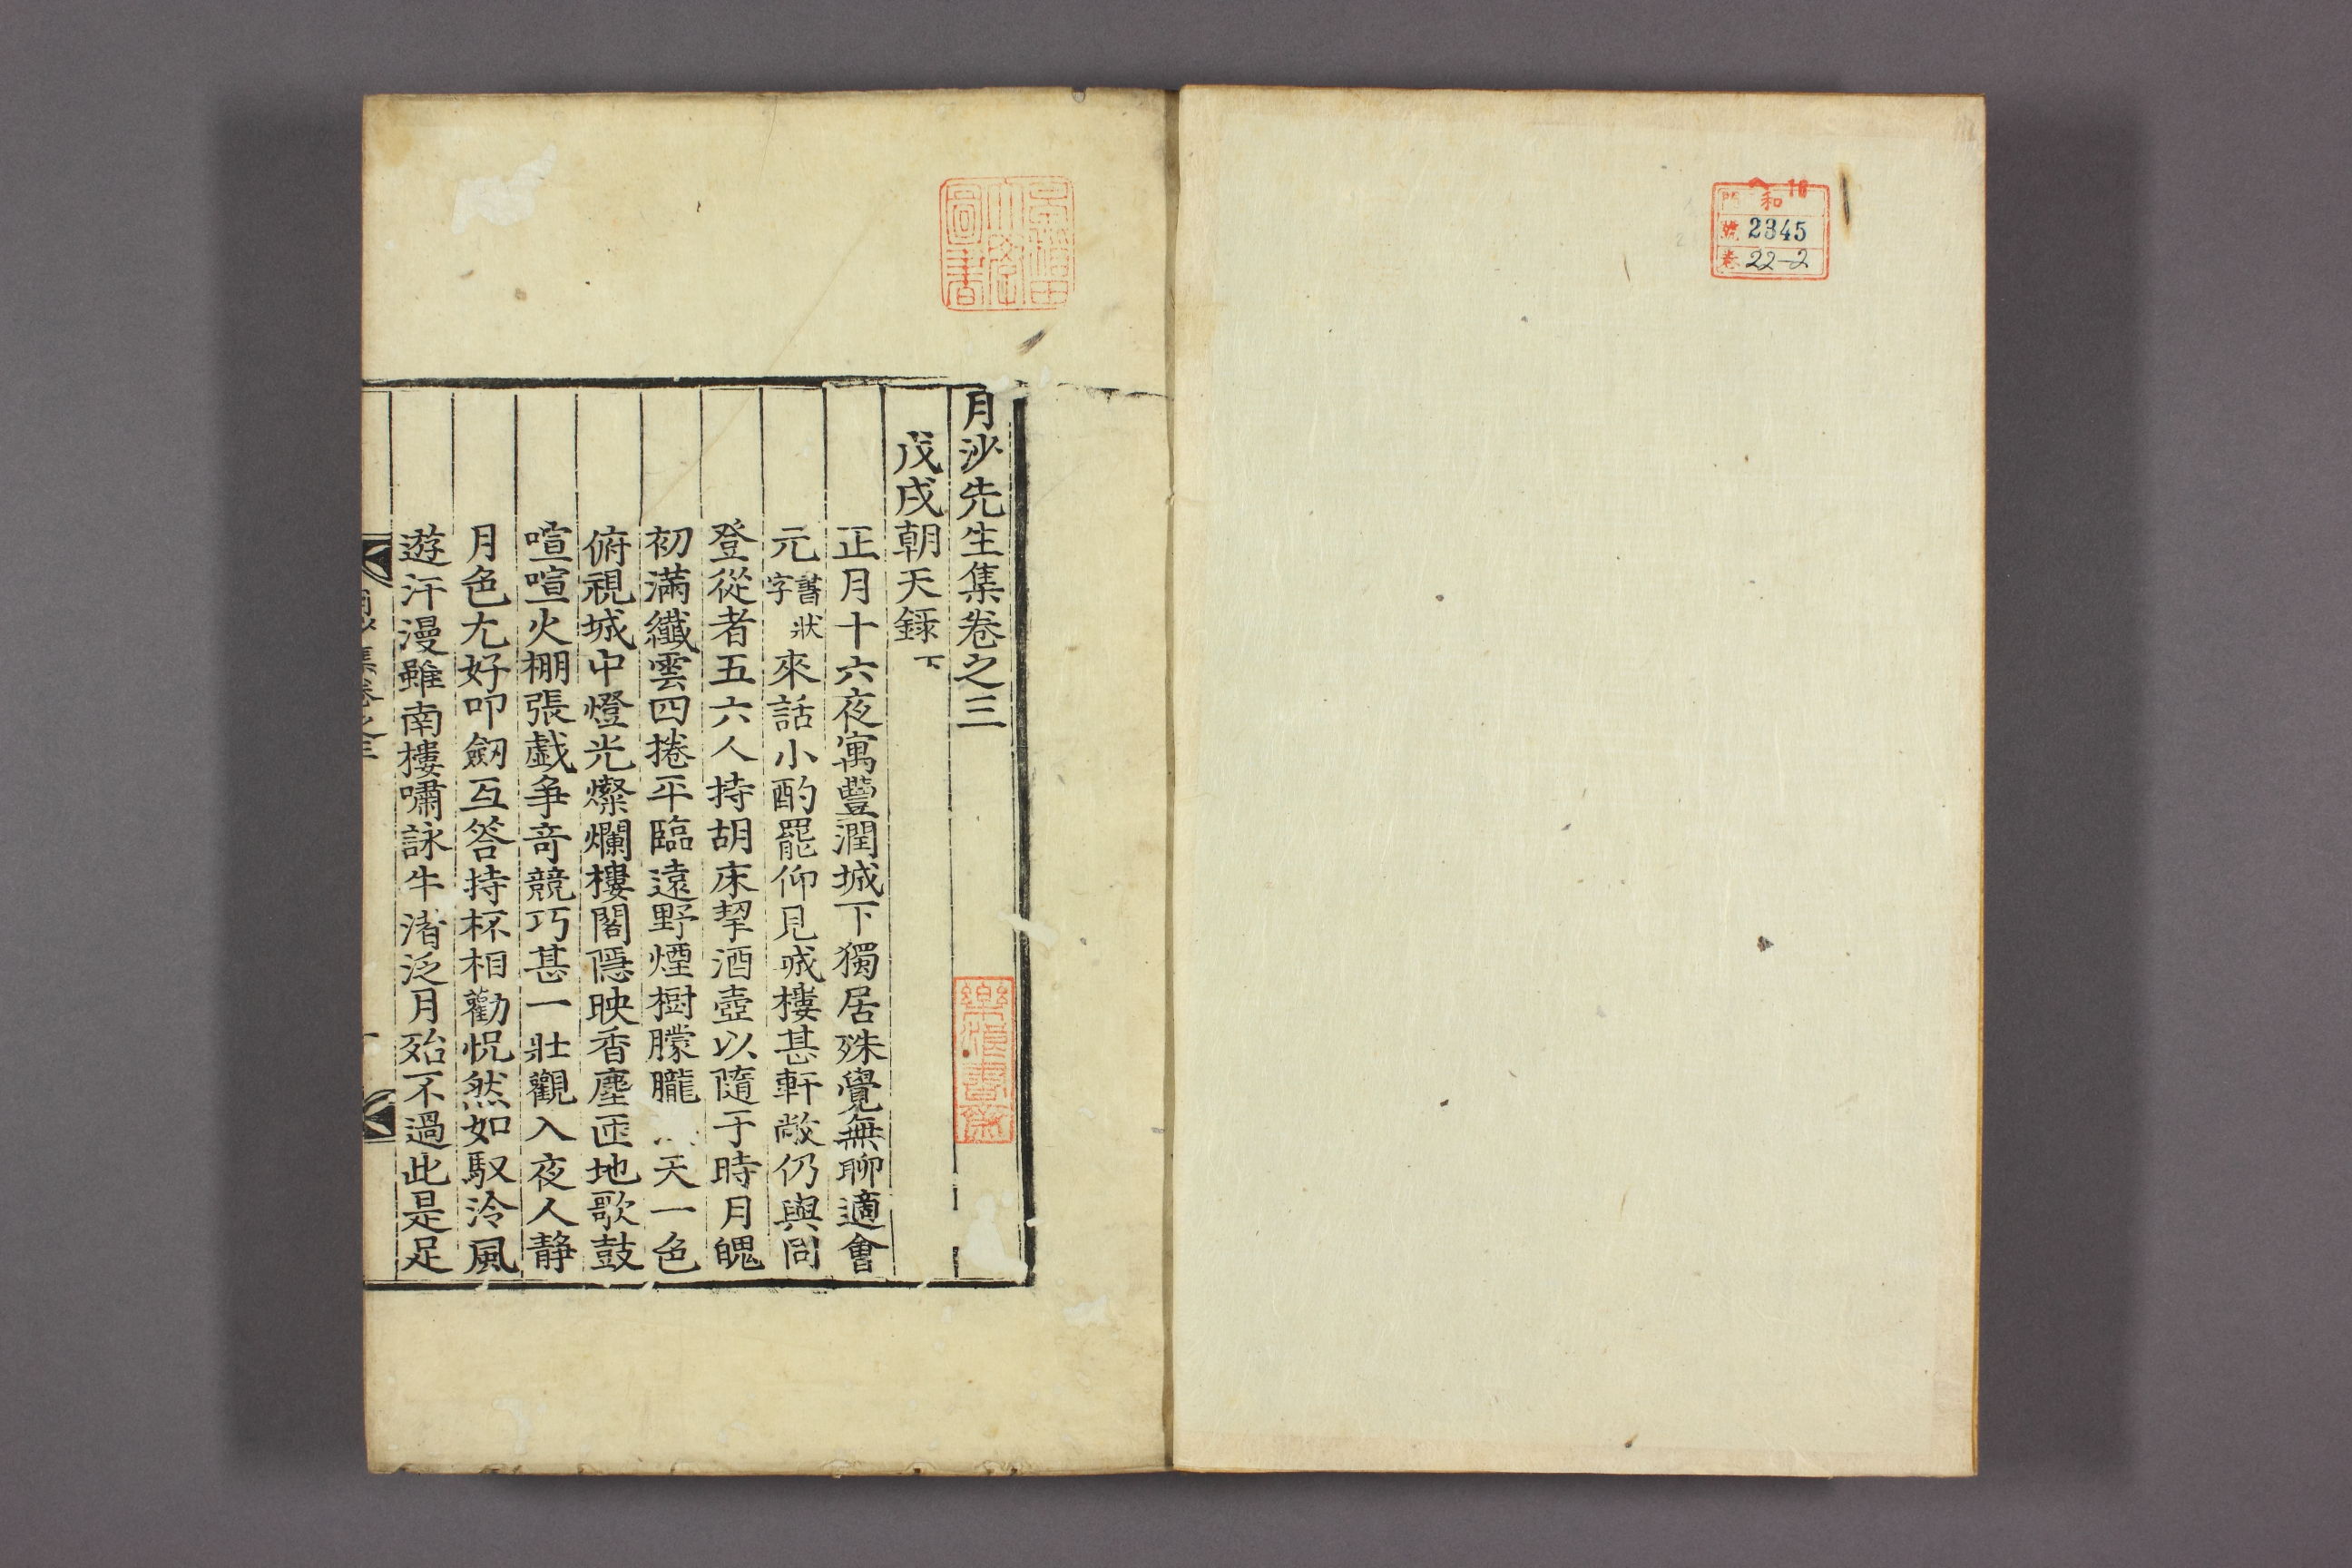 和
門
10
號 2345
卷 22-2
圖書
月沙先生集卷之三
戊戌朝天錄下
正月十六夜寓豐潤城下獨居殊覺無聊適會
元書狀字來話小酌罷仰見城樓甚軒敞仍與同
登從者五六人持胡床挈酒壺以隨于時月魄
初滿纖雲四捲平臨遠野煙樹朦朧天一色
俯視城中燈光燦爛樓閣隱映香塵匝地歌鼓
喧喧火棚張戱爭竒競巧甚一壯觀入夜人静
月色尤好叩劒互答持杯相勸怳然如馭泠風
遊汗漫雖南樓嘯詠牛渚泛月殆不過此是足
集卷之三